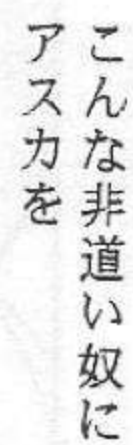 こんな非道い奴に
アスカを